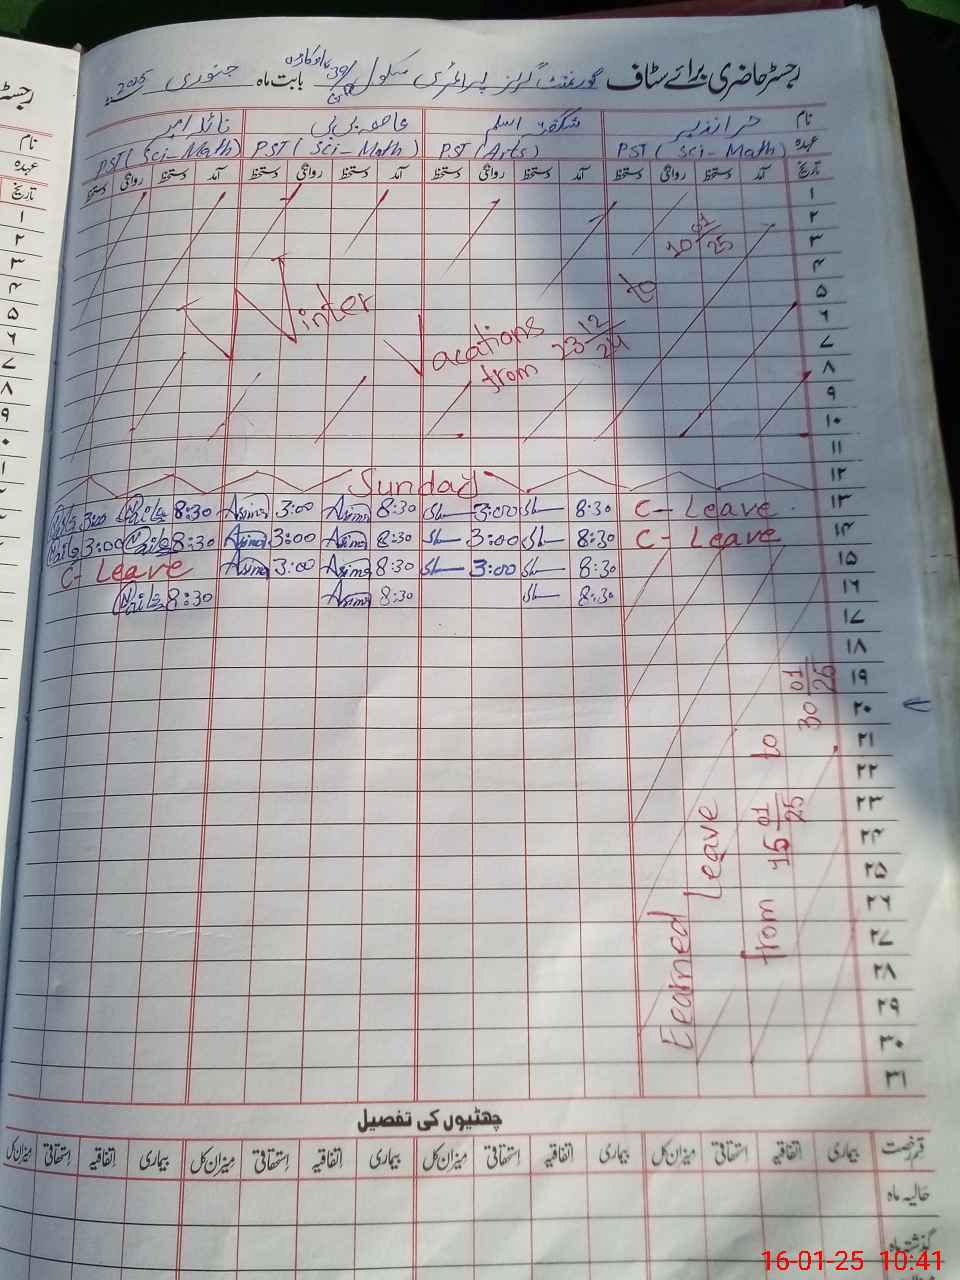 رجسٹر حاضری برائے سٹاف گورنمنٹ گرلز پرائمری سکول 39 بابت ماہ جنوری 2025
نام حرا نذیر شگفتہ اسلم عاصمہ بی بی نائلہ امیر
عہدہ PST (Sci-Math) PST (Arts) PST (Sci-Math) PST (Sci-Math)
تاریخ آمد دستخط روانگی دستخط آمد دستخط روانگی دستخط آمد دستخط روانگی دستخط آمد دستخط روانگی دستخط
۱
۲
۳
۴
۵
۶
۷
۸
۹
۱۰
۱۱
Winter Vacations from 23-12/24 to 10-01/25
۱۲ Sunday
۱۳ C-Leave 8:30 3:00 8:30 Asima 3:00 Asima 8:30 Naila 3:00 Naila
۱۴ C-Leave 8:30 3:00 8:30 Asima 3:00 Asima 8:30 Naila 3:00 Naila
۱۵ 8:30 3:00 8:30 Asima 3:00 Asima C-Leave
۱۶ 8:30 8:30 Asima 8:30 Naila
۱۷
۱۸
۱۹
۲۰
۲۱
۲۲
۲۳
۲۴
۲۵
۲۶
۲۷
۲۸
۲۹
۳۰
۳۱
Eearned Leave from 15 01/25 to 30 01/25
چھٹیوں کی تفصیل
قسم رخصت بیماری اتفاقیہ استحقاقی میزان کل بیماری اتفاقیہ استحقاقی میزان کل بیماری اتفاقیہ استحقاقی میزان کل بیماری اتفاقیہ استحقاقی میزان کل
حالیہ ماہ
گذشتہ ماہ
16-01-25 10:41